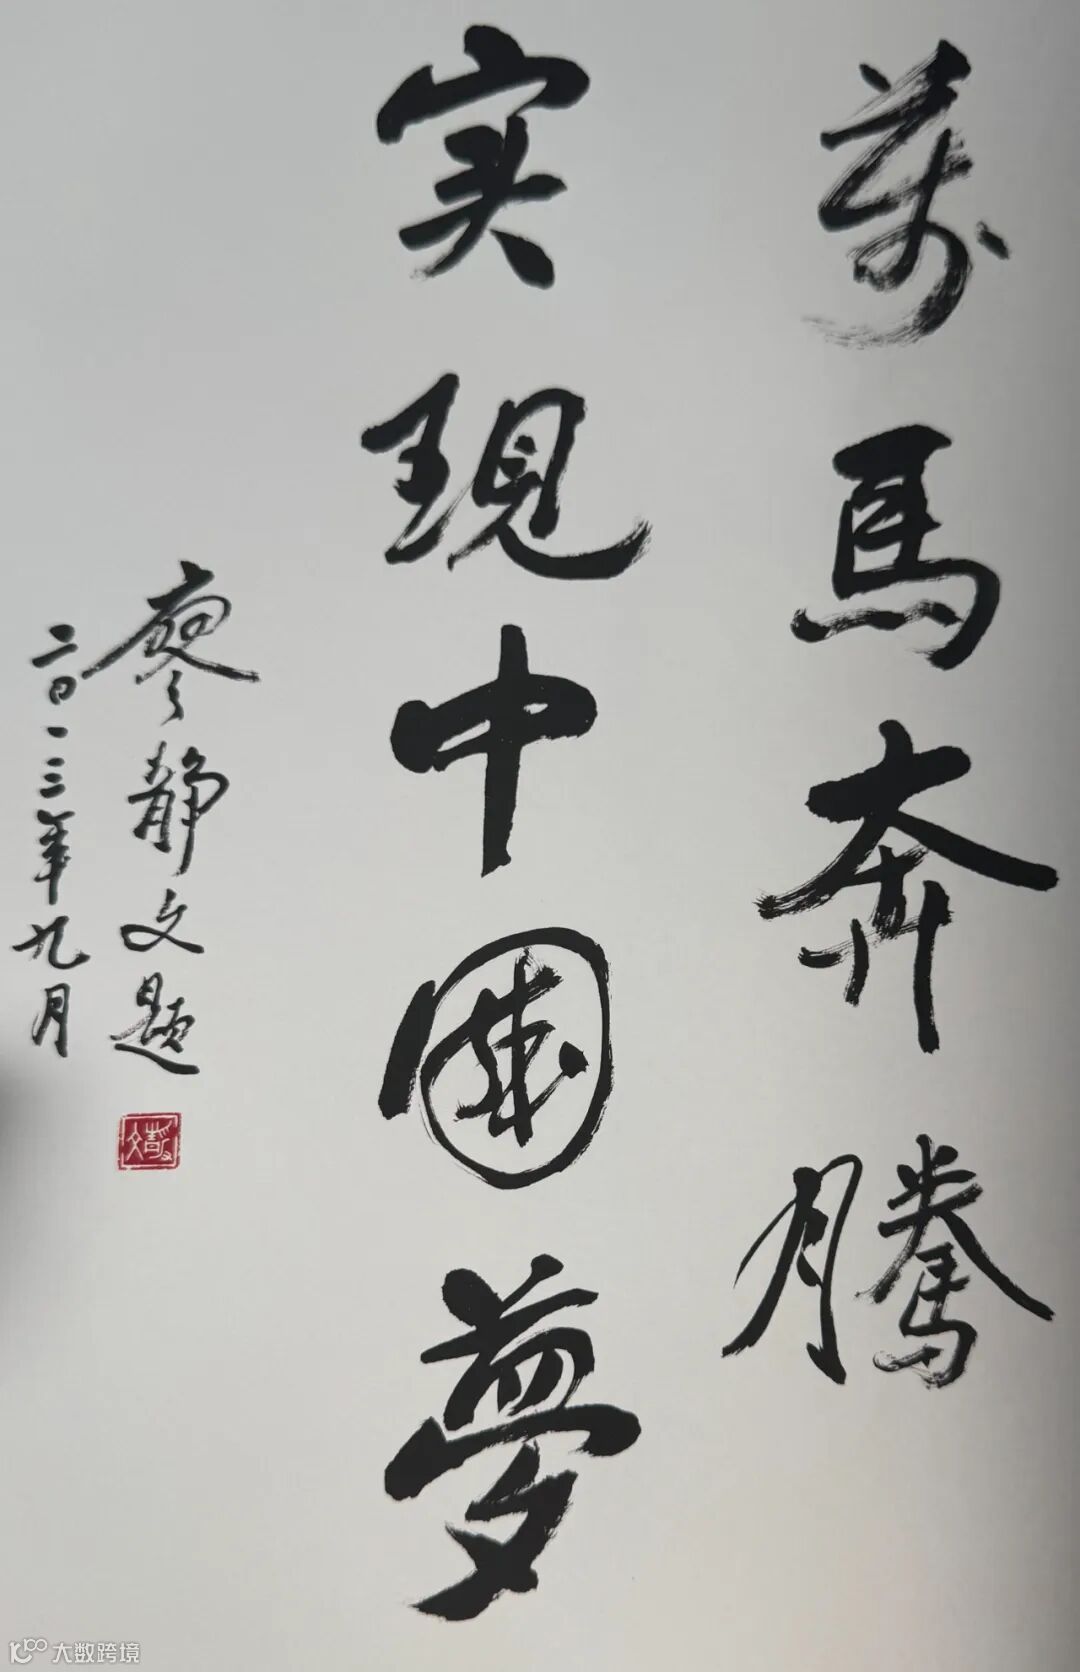 萬馬奔騰
实現中國夢
廖静文题
二〇一三年九月
静文
大数跨境